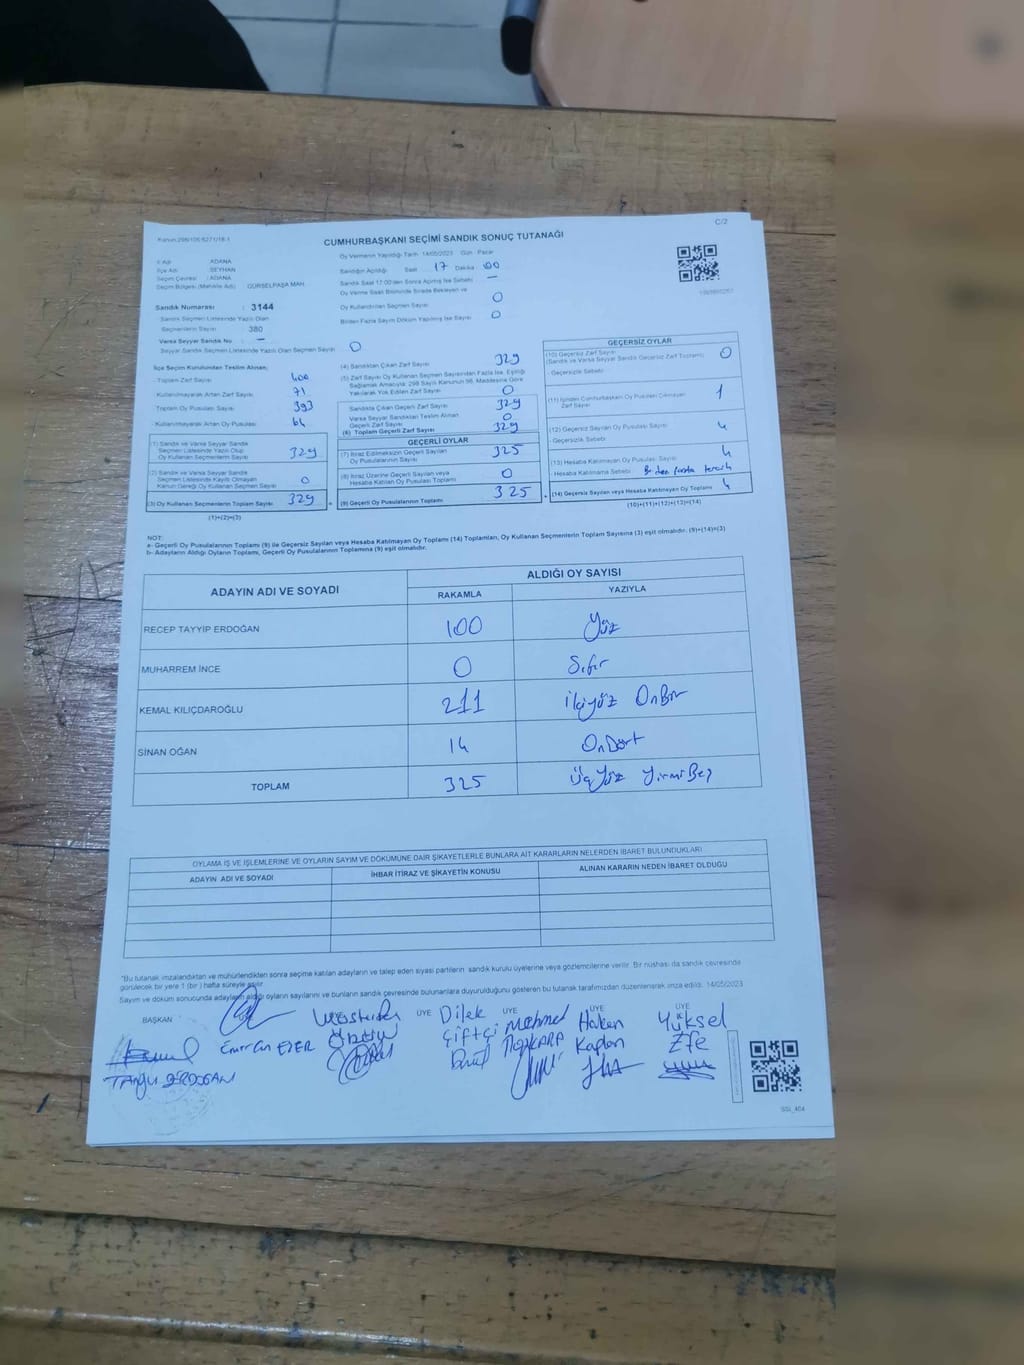 C/2
Kanun:298/105 6271/18-1
CUMHURBAŞKANI SEÇİMİ SANDIK SONUÇ TUTANAĞI
İl Adı : ADANA
İlçe Adı : SEYHAN
Seçim Çevresi : ADANA
Seçim Bölgesi (Mahalle Adı) : GÜRSELPAŞA MAH.
Oy Vermenin Yapıldığı Tarih 14/05/2023 Gün Pazar
Sandığın Açıldığı Saat 17 Dakika 00
Sandık Saat 17:00'den Sonra Açılmış İse Sebebi -
Oy Verme Saati Bitiminde Sırada Bekleyen ve
Oy Kullandırılan Seçmen Sayısı 0
Birden Fazla Sayım Döküm Yapılmış İse Sayısı 0
Sandık Numarası : 3144
Sandık Seçmen Listesinde Yazılı Olan
Seçmenlerin Sayısı 380
Varsa Seyyar Sandık No : -
Seyyar Sandık Seçmen Listesinde Yazılı Olan Seçmen Sayısı 0
İlçe Seçim Kurulundan Teslim Alınan;
Toplam Zarf Sayısı 400
Kullanılmayarak Artan Zarf Sayısı 71
Toplam Oy Pusulası Sayısı 393
Kullanılmayarak Artan Oy Pusulası 64
(1) Sandık ve Varsa Seyyar Sandık
Seçmen Listesinde Yazılı Olup
Oy Kullanan Seçmenlerin Sayısı 329
(2) Sandık ve Varsa Seyyar Sandık
Seçmen Listesinde Kayıtlı Olmayan
Kanun Gereği Oy Kullanan Seçmenlerin Sayısı 0
(3) Oy Kullanan Seçmenlerin Toplam Sayısı 329
(1)+(2)=(3)
(4) Sandıktan Çıkan Zarf Sayısı 329
(5) Zarf Sayısı Oy Kullanan Seçmen Sayısından Fazla İse, Eşitliği
Sağlamak Amacıyla; 298 Sayılı Kanunun 98. Maddesine Göre
Yakılarak Yok Edilen Zarf Sayısı 0
Sandıkta Çıkan Geçerli Zarf Sayısı 329
Varsa Seyyar Sandıktan Teslim Alınan
Geçerli Zarf Sayısı 0
(6) Toplam Geçerli Zarf Sayısı 329
GEÇERLİ OYLAR
(7) İtiraz Edilmeksizin Geçerli Sayılan
Oy Pusulalarının Sayısı 325
(8) İtiraz Üzerine Geçerli Sayılan veya
Hesaba Katılan Oy Pusulası Toplamı 0
(9) Geçerli Oy Pusulalarının Toplamı 325
GEÇERSİZ OYLAR
(10) Geçersiz Zarf Sayısı
(Sandık ve Varsa Seyyar Sandık Geçersiz Zarf Toplamı) 0
- Geçersizlik Sebebi:
(11) İçinden Cumhurbaşkanı Oy Pusulası Çıkmayan
Zarf Sayısı 1
(12) Geçersiz Sayılan Oy Pusulası Sayısı 4
- Geçersizlik Sebebi:
(13) Hesaba Katılmayan Oy Pusulası Sayısı 4
- Hesaba Katılmama Sebebi: Birden fazla tercih
(14) Geçersiz Sayılan veya Hesaba Katılmayan Oy Toplamı 4
(10)+(11)+(12)+(13)=(14)
NOT:
a- Geçerli Oy Pusulalarının Toplamı (9) ile Geçersiz Sayılan veya Hesaba Katılmayan Oy Toplamı (14) Toplamları, Oy Kullanan Seçmenlerin Toplam Sayısına (3) eşit olmalıdır. (9)+(14)=(3)
b- Adayların Aldığı Oyların Toplamı, Geçerli Oy Pusulalarının Toplamına (9) eşit olmalıdır.
ADAYIN ADI VE SOYADI ALDIĞI OY SAYISI
RAKAMLA YAZIYLA
RECEP TAYYİP ERDOĞAN 100 Yüz
MUHARREM İNCE 0 Sıfır
KEMAL KILIÇDAROĞLU 211 İkiyüz OnBir
SİNAN OĞAN 14 OnDört
TOPLAM 325 ÜçYüz YirmiBeş
OYLAMA İŞ VE İŞLEMLERİNE VE OYLARIN SAYIM VE DÖKÜMÜNE DAİR ŞİKAYETLERLE BUNLARA AİT KARARLARIN NELERDEN İBARET BULUNDUKLARI
ADAYIN ADI VE SOYADI İHBAR İTİRAZ VE ŞİKAYETİN KONUSU ALINAN KARARIN NEDEN İBARET OLDUĞU
"Bu tutanak imzalandıktan ve mühürlendikten sonra seçime katılan adayların ve talep eden siyasi partilerin sandık kurulu üyelerine veya gözlemcilerine verilir. Bir nüshası da sandık çevresinde
görülecek bir yere 1 (bir) hafta süreyle asılır.
Sayım ve döküm sonucunda adayların aldığı oyların sayılarını ve bunların sandık çevresinde bulunanlara duyurulduğunu gösteren bu tutanak tarafımızdan düzenlenerek imza edildi. 14/05/2023
BAŞKAN ÜYE ÜYE ÜYE ÜYE
Dilek Mehmet Hakan Yüksel
Emircan EZER Çiftçi Kaplan Efe
SSI_404